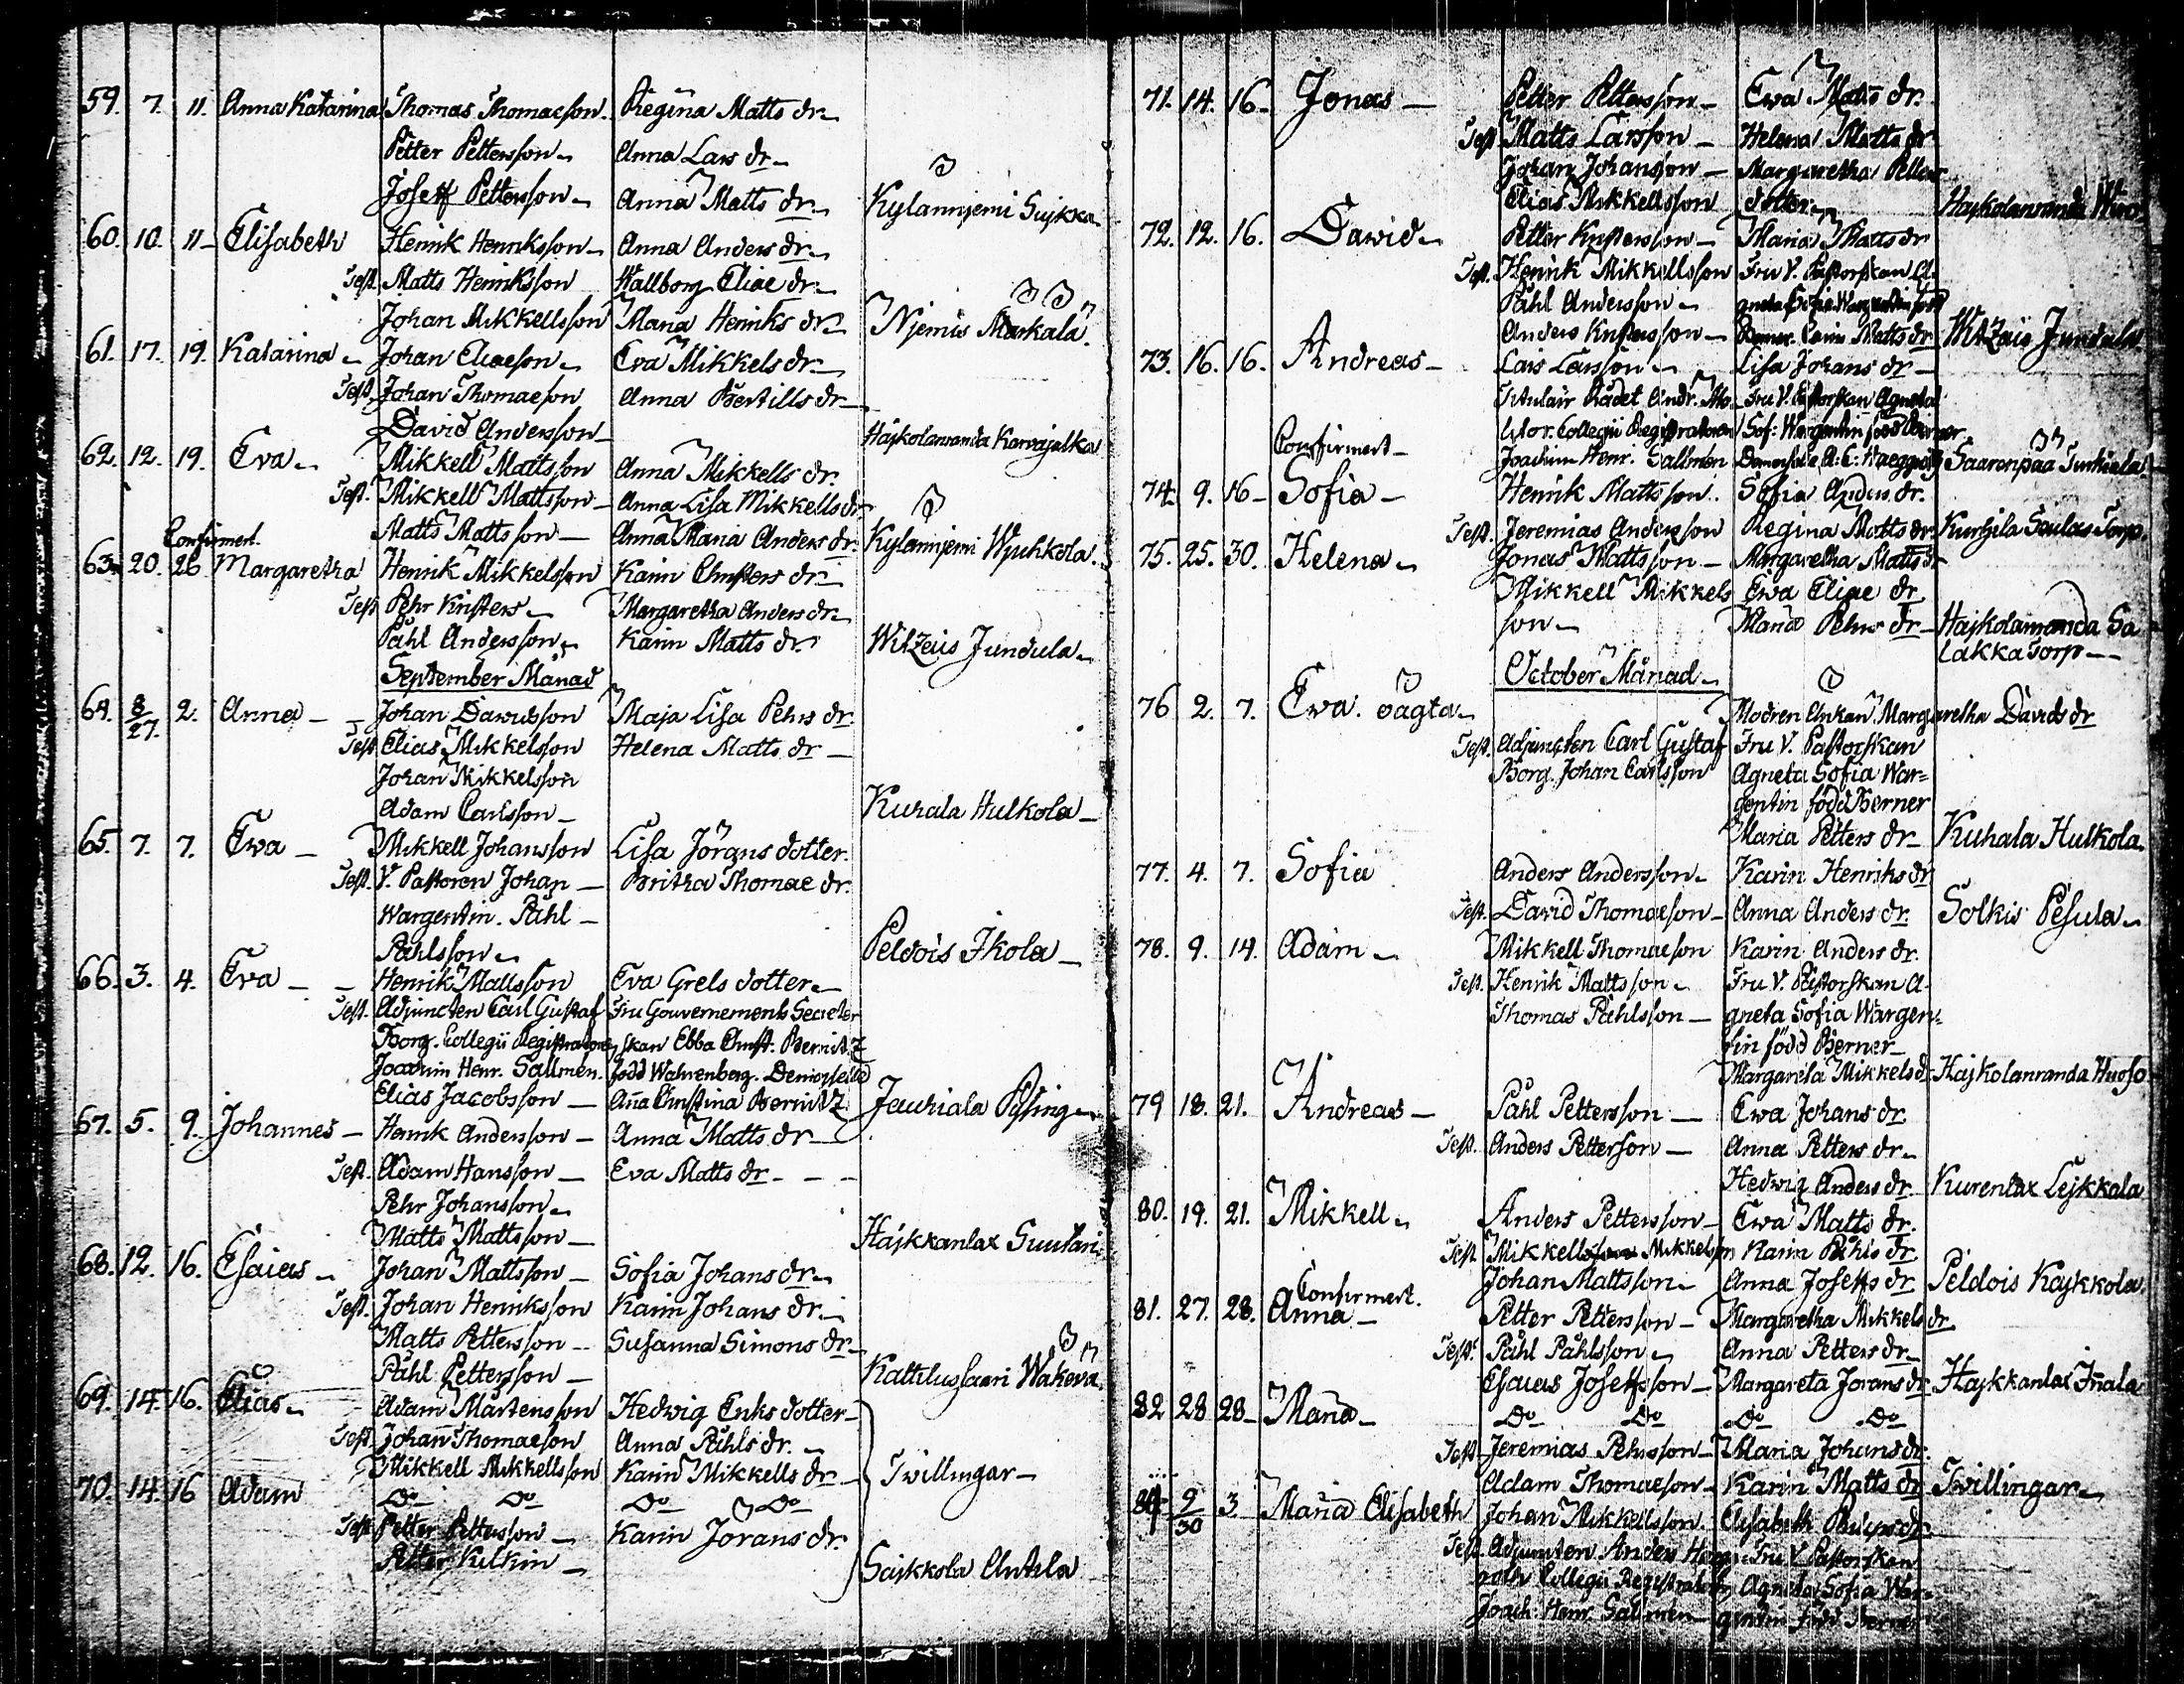 59. 7. 11. Anna Katarina Thomas Thomaeson. Regina Matts dr
Petter Pettersson Anna Lars dr
Joseff Pettersson Anna Matts dr Kylanniemi Sujkka
60. 10. 11 Elisabeth Henrik Henriksson Anna Anders dr
Test. Matts Henriksson Wallborg Eliae dr
Johan Mikkellsson Maria Henriks dr Njemis Markala.
61. 17. 19. Katarina Johan Eliaeson Eva Mikkels dr
Test. Johan Thomaeson Anna Bertills dr
David Andersson Hajkolanranda Karvajalka
62. 12. 19. Eva Mikkell Mattsson Anna Mikkells dr.
Test. Mikkell Mattsson Anna Lisa Mikkells dr
Matts Mattsson Anna Maria Anders dr. Kylanniemi Wjuhkola.
Confirmert.
63. 20. 26. Margaretha Henrik Mikkelsson Karin Christers dr
Test. Pehr Kristers Margaretha Anders dr
Påhl Andersson Karin Matts dr. Witzeiis Jundula
September Månad
64. 8/27. 2. Anna Johan Davidsson Maja Lisa Pehrs dr.
Test. Elias Mikkelsson Helena Matts dr
Johan Mikkelsson
Adam Carlsson Kuhala Hulkola
65. 7. 7. Ewa Mikkell Johansson Lisa Jörans dotter.
Test. V. Pastoren Johan Britha Thomae dr.
Wargentin. Påhl
Påhlsson Peldois Ikola
66. 3. 4. Eva Henrik Mattsson Eva Grels dotter
Test. Adjuncten Carl Gustaf Fru Gouvernements Secreter
Borg. Collegii Registratoren skan Ebba Christ. Bernitz
Joachim Henr. Sallmén. född Wahrenberg. Demoiselle
Elias Jacobsson Aña Christina Bernitz Jauhiala Pising
67. 5. 9. Johannes Henrik Andersson Anna Matts dr
Test. Adam Hansson Eva Matts dr
Pehr Johansson
Matts Mattsson Hajkkanlax Suutari
68. 12. 16. Esaias Johan Mattsson Sofia Johans dr
Test. Johan Henriksson Karin Johans dr
Matts Pettersson Susanna Simons dr
Påhl Pettersson Kattelussaari Wakeva
69. 14. 16. Elias Adam Mårtensson Hedwig Eriks dotter
Test. Johan Thomaeson Anna Påhls dr.
Mikkell Mikkellsson Karin Mikkells dr Twillingar
70. 14. 16 Adam Do Do Do Do
Test. Petter Pettersson Karin Jörans dr.
Petter Kilkin Sajkkola Anttila
71. 14. 16 Jonas Petter Pettersson Ewa Matts dr.
Test. Matts Larsson Helena Matts dr
Johan Johansson Margaretha Petters
Elias Mikkellsson dotter Hajkolanranda Wiro
72. 12. 16. David Petter Kristersson Maria Matts dr
Test. Henrik Mikkellsson Fru V. Pastorskan A
Påhl Andersson gneta Sofia Wargentin född
Anders Kristersson Berner. Carin Matts dr Witzeiis Jundula
73. 16. 16. Andreas Lars Larsson Lisa Johans dr
Titulair Rådet Andr. Fru V. Pastorskan Agneta
Collegii Registratoren Sof: Wargentin född Berner
Confirmert Joachim Henr. Sallmén Demoiselle A: C: Saarenpaa Junkkala
74. 9. 16 Sofia Henrik Mattsson. Sofia Anders dr.
Test. Jeremias Andersson Regina Matts dr Kurhila Saulas Torp.
75. 25. 30. Helena Jonas Mattsson Margaretha Matts dr
Mikkell Mikkels Ewa Eliae dr
son Maria Pehrs dr Hajkolanranda Sa
lakka Torp
October Månad
76 2. 7. Ewa. oägta Modren Enkan Margaretha Davids dr
Test. Adjuncten Carl Gustaf Fru V. Pastorskan
Borg. Johan Carlsson Agneta Sofia War=
gentin född Berner
Maria Petters dr Kuhala Hulkola
77. 4. 7. Sofia Anders Andersson Karin Henriks dr
Test. David Thomaeson Anna Anders dr. Solkis Pesula
78. 9. 14. Adam Mikkell Thomaeson Karin Anders dr.
Test. Henrik Mattsson Fru V. Pastorskan A
Thomas Påhlsson gneta Sofia Wargen=
tin född Berner
Margareta Mikkels d. Hajkolanranda Huoso
79 18. 21. Andreas Påhl Pettersson Ewa Johans dr
Test. Anders Pettersson Anna Petters dr
Hedwig Anders dr Kurenlax Lejkkala
80. 19. 21. Mikkell Anders Pettersson Ewa Matts dr.
Test. Mikkell Mikkelsson Karin Påhls dr
Johan Mattsson Anna Joseffs dr Peldois Kajkkola
Confirmert.
81. 27. 28. Anna Petter Pettersson Margaretha Mikkels dr
Test. Påhl Påhlsson Anna Petters dr
Esaias Joseffsson Margareta Jörans dr Hajkkanlax Iñala
82 28 28 Maria Do Do Do Do
Test. Jeremias Pehrsson Maria Johans dr.
Adam Thomaeson Karin Matts dr Twillingar
84 9/30 3 Maria Elisabeth Johan Mikkellsson. Elisabeth Philips dr
Test. Adjuncten Anders Fru V. Pastorskan
Collegii Registratoren Agneta Sofia War=
Joach: Henr. Sallmén gentin född Berner